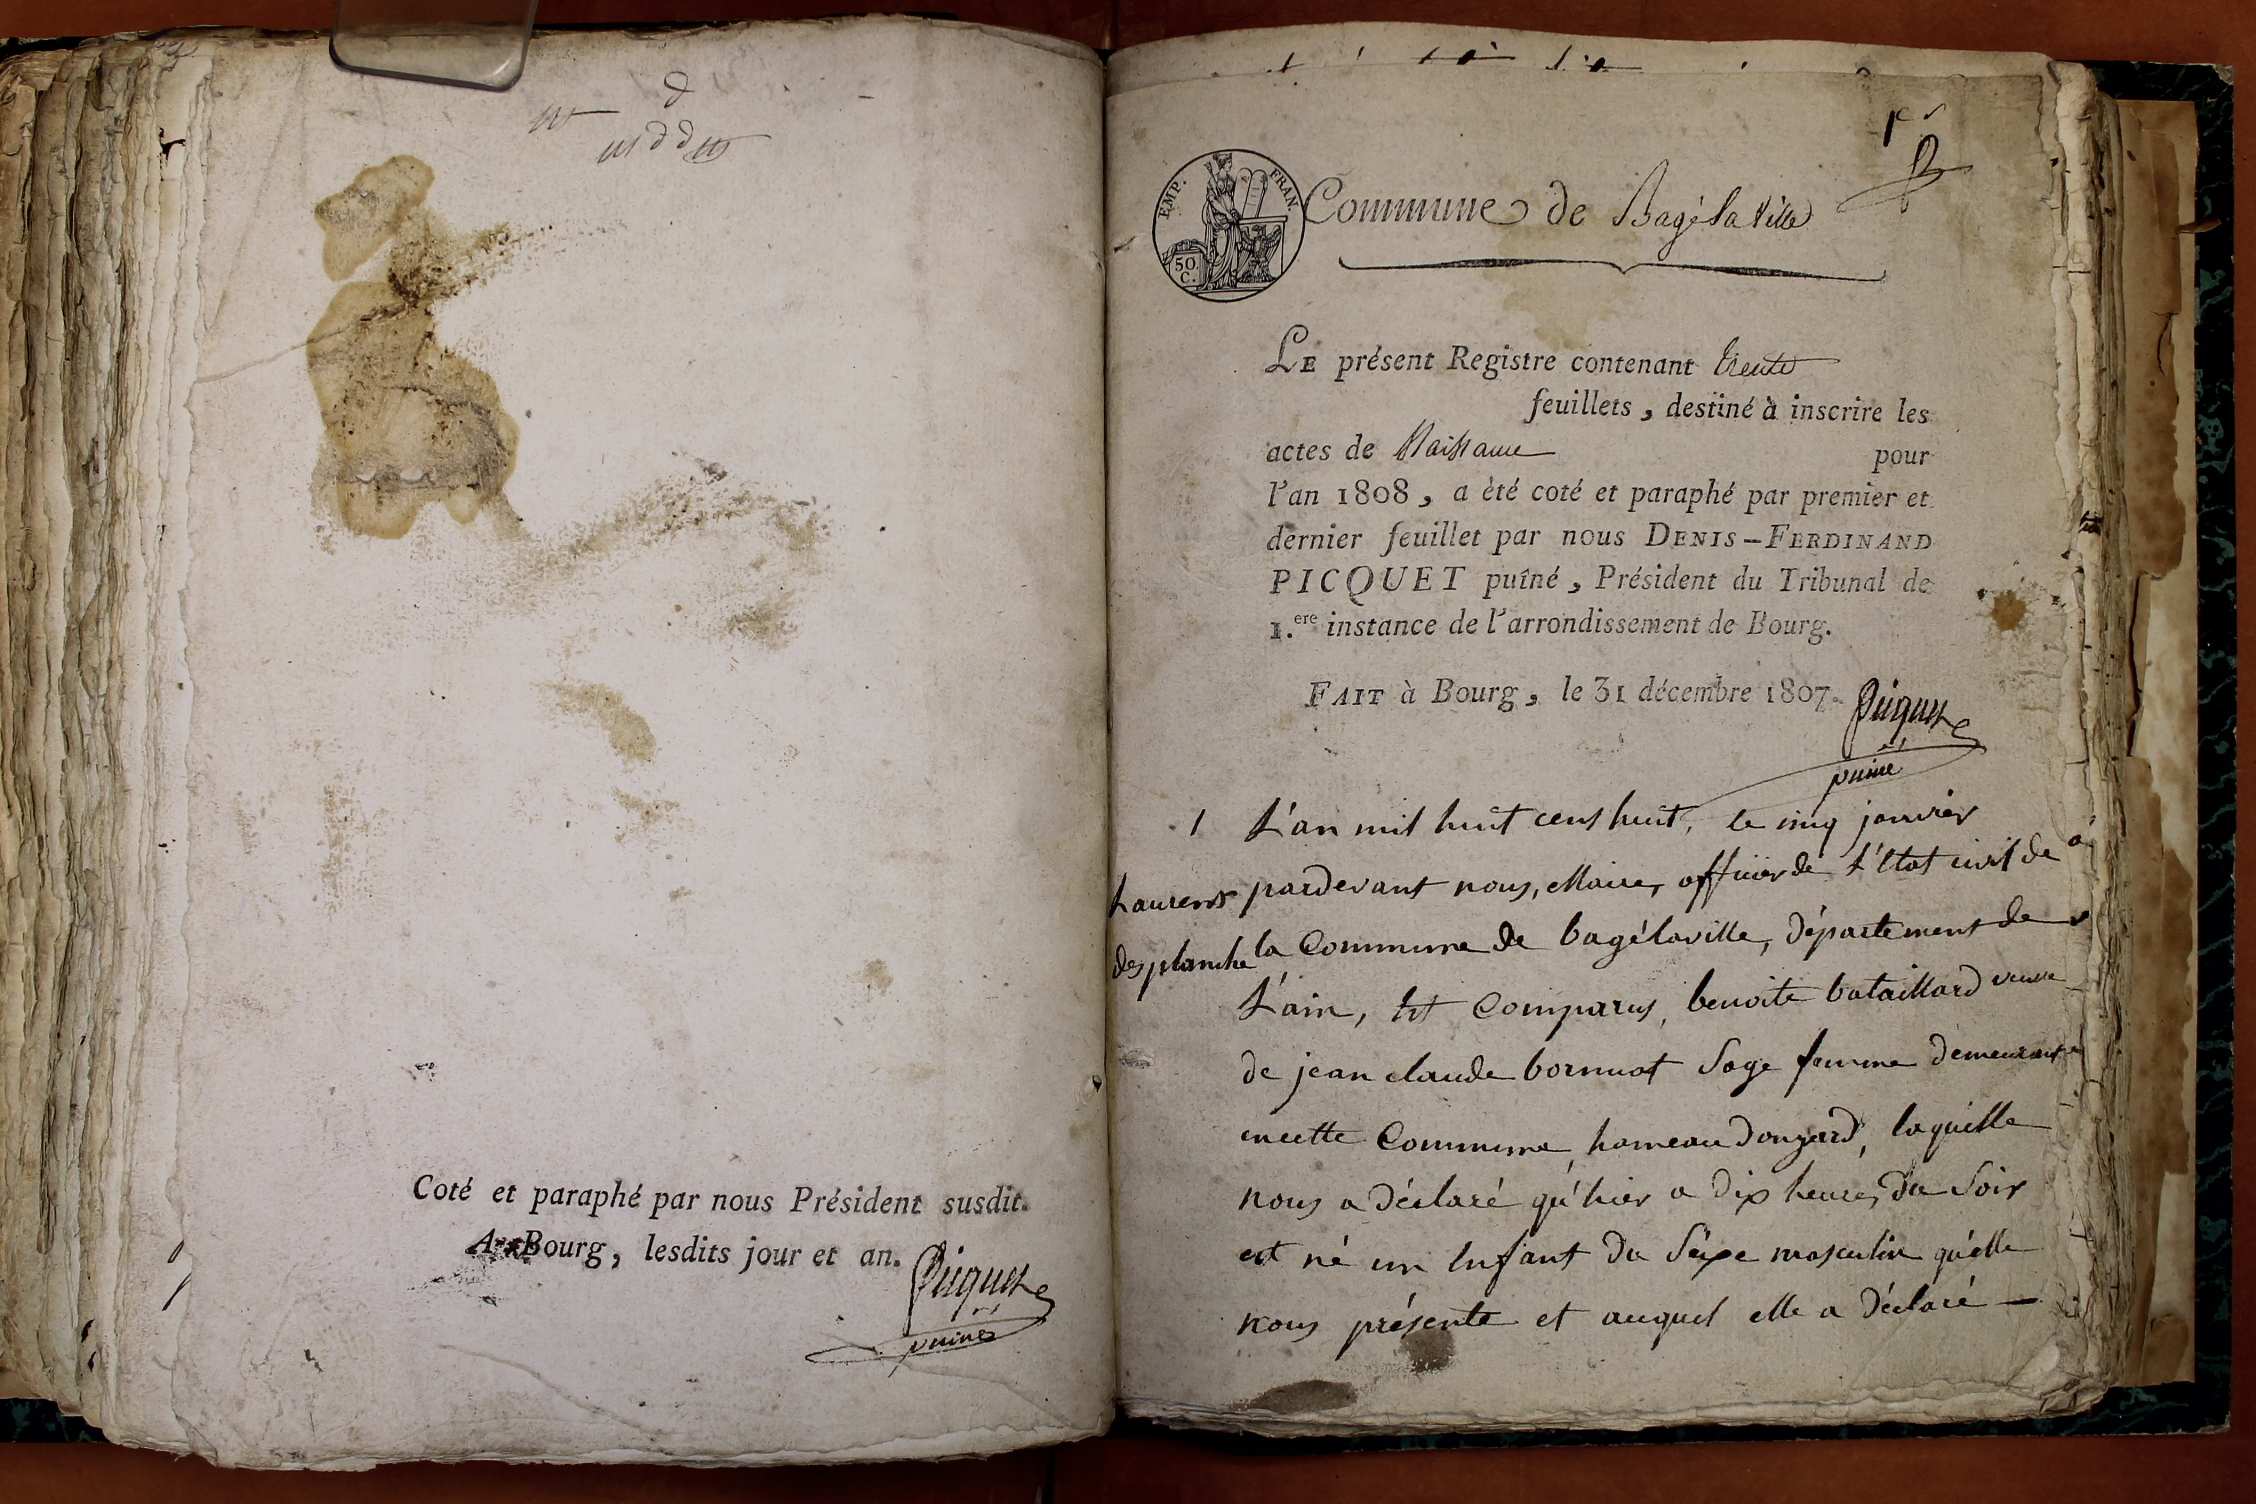 Coté et paraphé par nous Président susdit.
A Bourg, lesdits jour et an.
Picquet
puiné
1er
EMP. FRAN.
50
C.
Commune de Bagé la Ville
LE présent Registre contenant trente
feuillets, destiné à inscrire les
actes de Naissance pour
l'an 1808, a èté coté et paraphé par premier et
dernier feuillet par nous DENIS-FERDINAND
PICQUET puîné, Président du Tribunal de
1.ere instance de l'arrondissement de Bourg.
FAIT à Bourg, le 31 décembre 1807.
Picquet
puiné
1 L'an mil huit cent huit, le cinq janvier
Laurent
pardevant nous, Maire, officier de L'Etat civil de
desplanche
la Commune de bagélaville, département de
L'ain, Est Comparus, benoite bataillard veuve
de jean claude bornuat Sage femme demeurante
en cette Commune, hameau donzard, laquelle
nous a déclaré qu'hier a dix heures du Soir
est né un Enfant du Séxe masculin qu'elle
nous présente et auquel elle a déclaré —